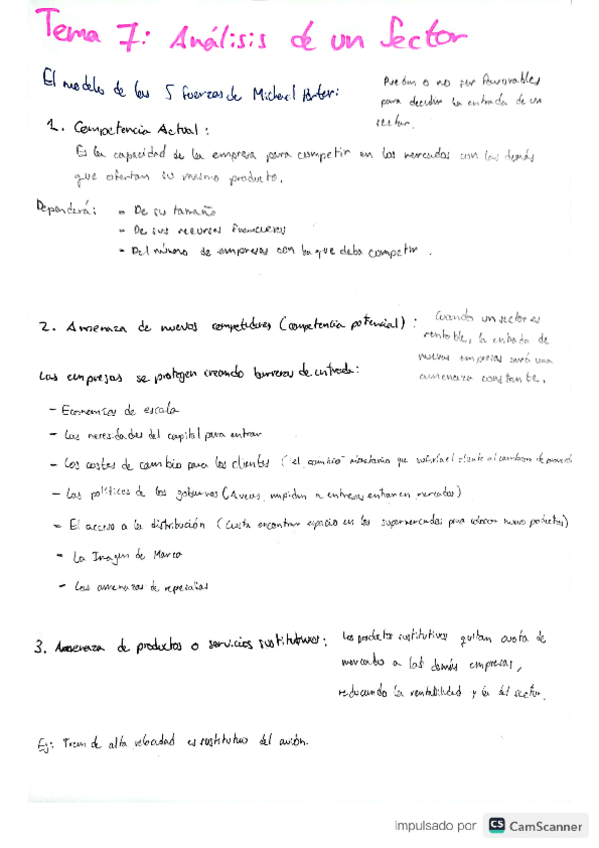 Tema 7: Análisis de un Sector
El modelo de las 5 fuerzas de Michael Porter:
Pueden o no ser favorables
para decidir la entrada de un
sector.
1. Competencia Actual:
Es la capacidad de la empresa para competir en los mercados con las demás
que ofertan su mismo producto.
Dependerá: - De su tamaño
- De sus recursos financieros
- Del número de empresas con la que deba competir.
2. Amenaza de nuevos competidores (competencia potencial):
Cuando un sector es
rentable, la entrada de
nuevas empresas será una
amenaza constante.
Las empresas se protegen creando barreras de entrada:
- Economías de escala
- Las necesidades del capital para entrar
- Los costes de cambio para los clientes ("el cambio" monetario que sufriría el cliente al cambiar de
- Las políticas de los gobiernos (A veces, impiden a entrar en mercados)
- El acceso a la distribución (Cuesta encontrar espacio en los supermercados para colocar nuevos productos)
- La Imagen de Marca
- Las amenazas de represalias
3. Amenaza de productos o servicios sustitutivos:
Los productos sustitutivos quitan cuota de
mercado a las demás empresas,
reduciendo la rentabilidad y la del sector.
Ej: Tren de alta velocidad es sustitutivo del avión.
impulsado por CS CamScanner